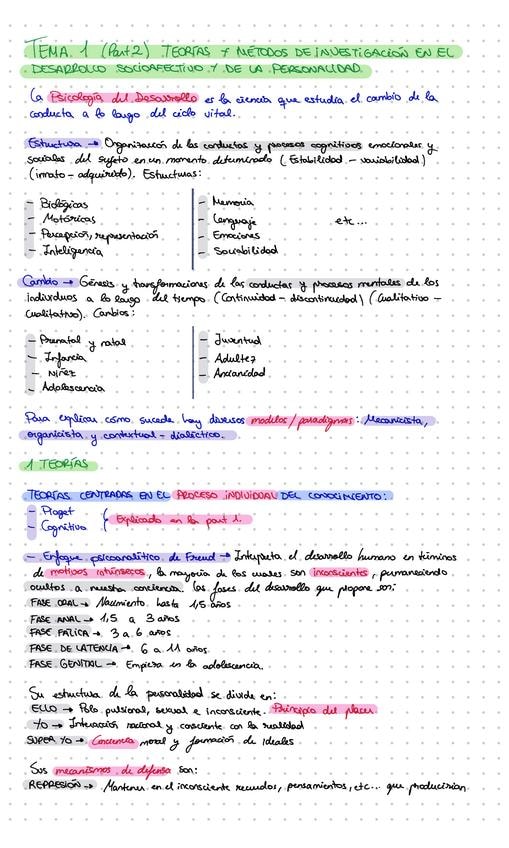 TEMA 1 (Part 2) TEORÍAS Y MÉTODOS DE INVESTIGACIÓN EN EL
DESARROLLO SOCIOAFECTIVO Y DE LA PERSONALIDAD
La Psicología del Desarrollo es la ciencia que estudia el cambio de la
conducta a lo largo del ciclo vital.
Estructura → Organización de las conductas y procesos cognitivos emocionales y
sociales del sujeto en un momento determinado (Estabilidad - variabilidad)
(innato - adquirido). Estructuras:
- Biológicas
- Motóricas
- Percepción, representación
- Inteligencia
- Memoria
- Lenguaje
- Emociones
- Sociabilidad
etc...
Cambio → Génesis y transformaciones de las conductas y procesos mentales de los
individuos a lo largo del tiempo. (Continuidad - discontinuidad) (Cualitativo -
cualitativo). Cambios:
- Prenatal y natal
- Infancia
- Niñez
- Adolescencia
- Juventud
- Adultez
- Ancianidad
Para explicar cómo sucede hay diversos modelos/paradigmas: Mecanicista,
organicista y contextual - dialéctico.
1 TEORÍAS
TEORÍAS CENTRADAS EN EL PROCESO INDIVIDUAL DEL CONOCIMIENTO:
- Piaget
- Cognitivo
{ Explicado en la part 1.
- Enfoque psicoanalítico de Freud → Interpreta el desarrollo humano en términos
de motivos intrínsecos, la mayoría de los cuales son inconscientes, permaneciendo
ocultos a nuestra conciencia. Las fases del desarrollo que propone son:
FASE ORAL → Nacimiento hasta 1,5 años
FASE ANAL → 1,5 a 3 años
FASE FÁLICA → 3 a 6 años
FASE DE LATENCIA → 6 a 11 años
FASE GENITAL → Empieza en la adolescencia.
Su estructura de la personalidad se divide en:
ELLO → Polo pulsional, sexual e inconsciente. Principio del placer
YO → Interacción racional y consciente con la realidad
SUPER YO → Conciencia moral y formación de ideales
Sus mecanismos de defensa son:
REPRESIÓN → Mantener en el inconsciente recuerdos, pensamientos, etc... que producirían